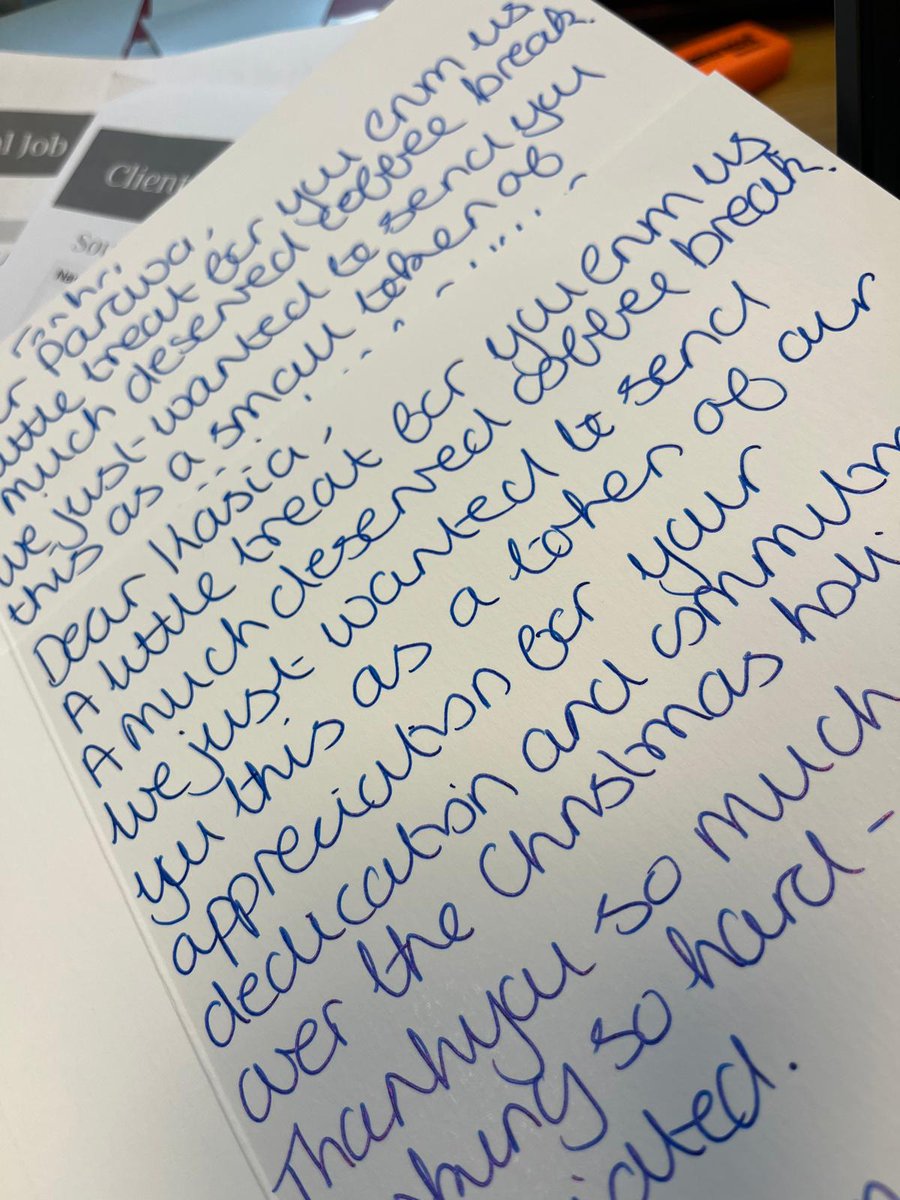 l Job
Client
Sou
Ne
little treat for you from us
much deserved coffee break.
we just wanted to send you
this as a small token of
Dear Kasia,
A little treat for you from us
A much deserved coffee break.
we just wanted to send
you this as a token of our
appreciation for your
dedication and commitm
over the Christmas holi
Thankyou so much
so hard -
ciated.